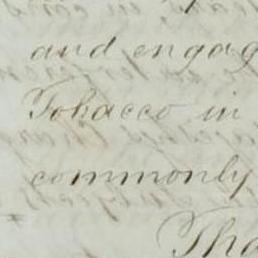 and engag
Tobacco in
commonly
Tha